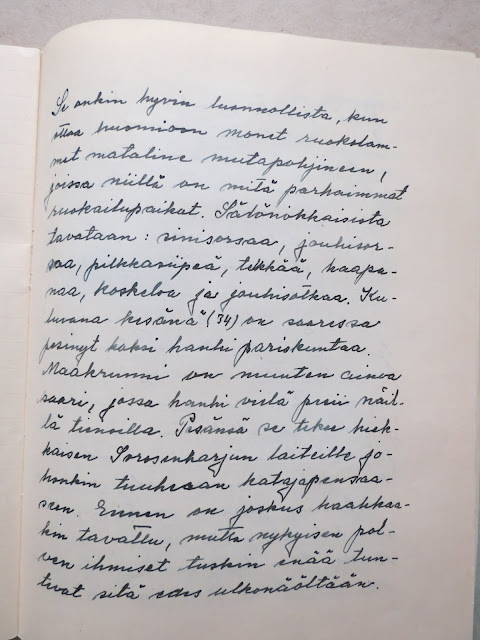 Se onkin hyvin luonnollista, kun
ottaa huomioon monet ruokolam-
met mataline mutapohjineen,
joissa niillä on mitä parhaimmat
ruokailupaikat. Sädönokkaisista
tavataan: sinisorsaa, jouhisor-
saa, pilkkasiipeä, telkkää, haapa-
naa, koskeloa ja jouhisotkaa. Ku-
luvana kesänä (34) on saaressa
pesinyt kaksi hanhi pariskuntaa.
Maakrunni on muuten ainoa
saari, jossa hanhi vielä pesii näil-
lä tienoilla. Pesänsä se tekee hiek-
kaisen Sorosenharjun laiteille jo-
honkin tuuheaan katajapensaa-
seen. Ennen on joskus haahkaa-
kin tavattu, mutta nykyisen pol-
ven ihmiset tuskin enää tun-
tevat sitä edes ulkonäöltään.